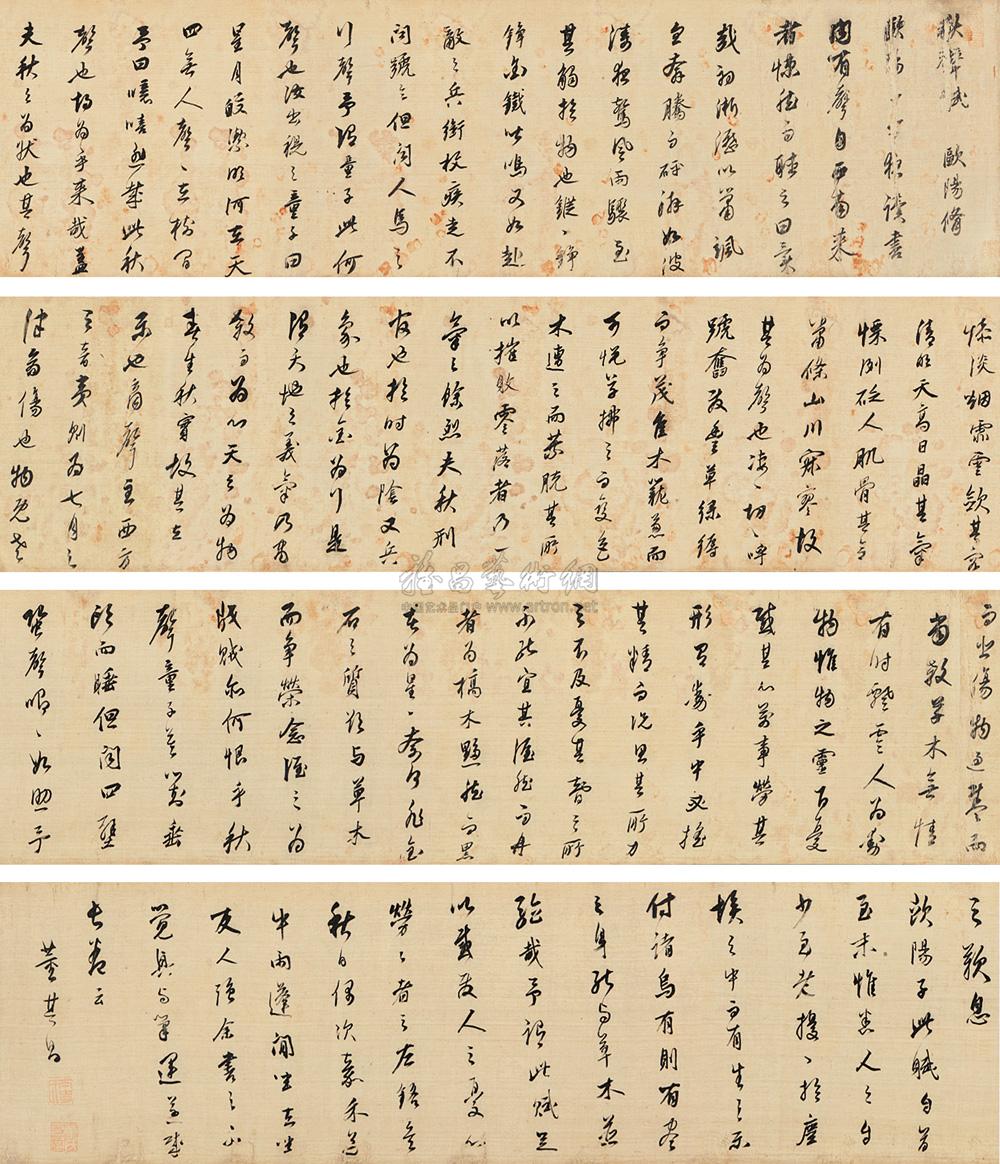 秋聲賦 歐陽脩
歐陽子方夜讀書
聞有聲自西南來
者悚然而聽之曰異
哉初淅瀝以蕭颯
忽奔騰而砰湃如波
濤夜驚風雨驟至
其觸於物也鏦〃錚
錚金鐵皆鳴又如赴
敵之兵銜枚疾走不
聞號令但聞人馬之
行聲予謂童子此何
聲也汝出視之童子曰
星月皎潔明河在天
四無人聲〃在樹間
予曰噫嘻悲哉此秋
聲也胡為乎來哉蓋
夫秋之為狀也其聲
慘淡烟霏雲歛其容
清明天高日晶其氣
慄冽砭人肌骨其意
蕭條山川寂寥故
其為聲也凄〃切〃呼
號奮發豐草綠縟
而爭茂佳木蘢蔥而
可悅草拂之而變色
木遭之而葉脫其所
以摧敗零落者乃一
氣之餘烈夫秋刑
官也於時為陰又兵
象也於金為行是
謂天地之義氣乃常
殺而為心天之為物
春生秋實故其在
樂也商聲主西方
之音夷則為七月之
律商傷也物既老
而悲傷物過盛而
當殺草木無情
有時飄零人為動
物惟物之靈百憂
感其心萬事勞其
形有動乎中必搖
其精而況思其所力
之不及憂其智之所
不能宜其渥然而丹
者為槁木黟然而黑
者為星〃奈何非金
石之質欲與草木
而爭榮念誰之為
戕賊亦何恨乎秋
聲童子莫對垂
頭而睡但聞四壁
蟲聲唧〃如助予
之歎息
歐陽子此賦自首
至末惟悲人之自
少至老擾〃於塵
埃之中而有生之樂
付諸烏有則有盡
之身能與草木並
馳哉予讀此賦足
以感發人之憂心
勞〃者之左銘矣
秋日偶次嘉禾道
中雨蓬閒坐在坐
友人強余書之不
覺興與筆運並成
長卷云
董其昌
雅昌藝術網
www.artron.net